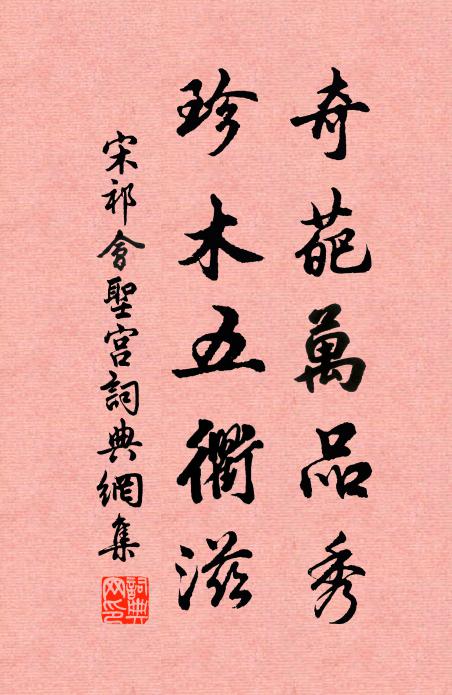 奇葩萬品秀
珍木五衢滋
宋祁會聖宮詞典網集
詞典網印